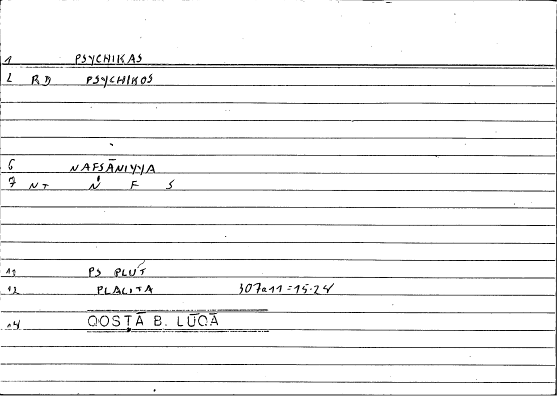 1 PSYCHIKAS
2 RD PSYCHIKOS
6 NAFSĀNIYYA
7 NT N F S
12 PS PLUT
13 PLACITA 307a11 = 15.24
14 QOSṬĀ B. LŪQĀ